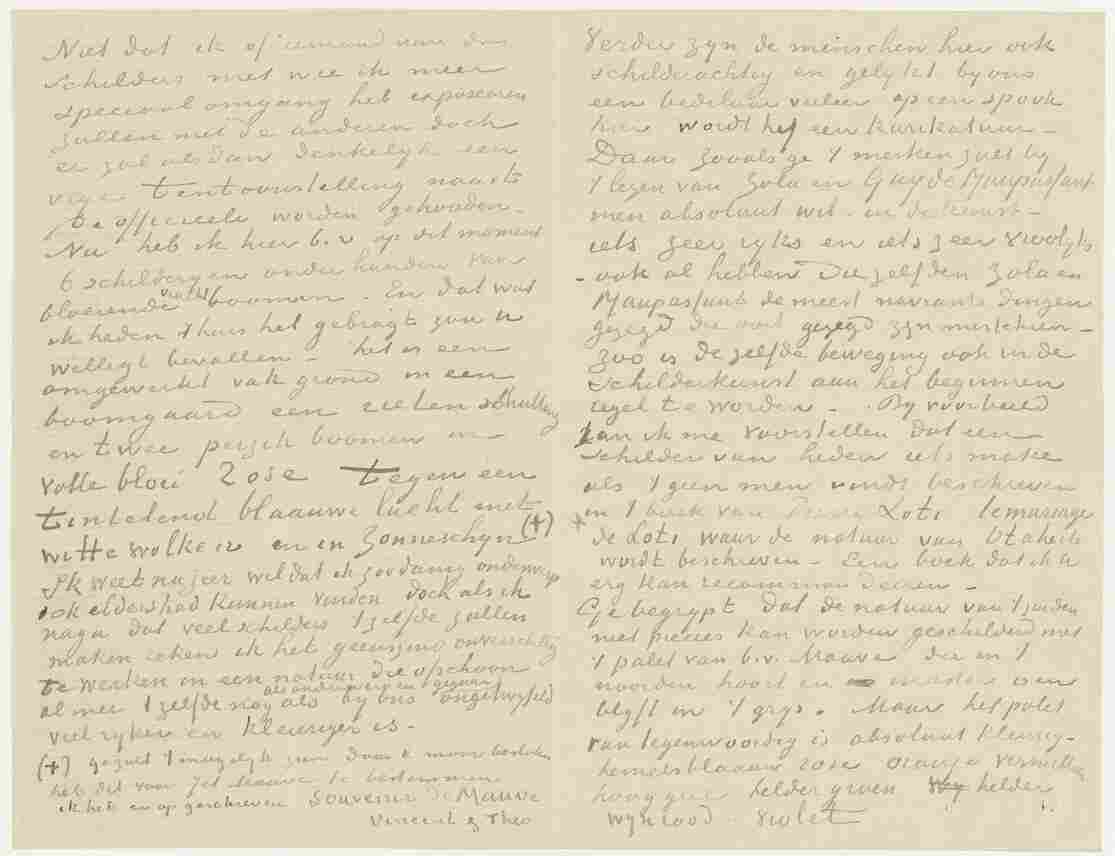 Niet dat ik of iemand van de
schilders met wie ik meer
speciaal omgang heb exposeeren
zullen met de anderen doch
er zal alsdan denkelyk een
vrye tentoonstelling naast
de officieele worden gehouden.
Nu heb ik hier b.v. op dit moment
6 schilderyen onder handen van
bloeiende vrucht boomen. En dat wat
ik heden thuis heb gebragt zou U
welligt bevallen – het is een
omgewerkt vak grond in een
boomgaard een rieten schutting
en twee perzik boomen in
volle bloei Rose tegen een
tintelend blaauwe lucht met
witte wolken en in zonneschyn (+)
Ik weet nu zeer wel dat ik zoodanig onderwerp
ook elders had kunnen vinden doch als ik
naga dat veel schilders 't zelfde zullen
maken reken ik het geenszins onverschillig
te werken in een natuur die ofschoon
als onderwerp en gegeven
al met 't zelfde nog als by ons ongetwyfeld
veel ryker en kleuriger is.
(+) gy zult 't mogelyk zien daar ik
heb dit voor Jet Mauve te bestemmen
ik heb er op geschreven Souvenir de Mauve
Vincent & Theo
Verder zyn de menschen hier ook
schilderachtig en gelykt by ons
een bedelaar veeleer op een spook
hier wordt hy een karikatuur –
Daar zooals ge 't merken zult by
't lezen van Zola en Guy de Maupassant
men absoluut wil – in de kunst –
iets zeer ryks en iets zeer vroolyks
– ook al hebben die zelfden Zola en
Maupassant de meest navrante dingen
gezegd die ooit gezegd zyn misschien –
zoo is de zelfde beweging ook in de
schilderkunst aan het beginnen
regel te worden – . By voorbeeld
kan ik me voorstellen dat een
schilder van heden iets make
als 't geen men vindt beschreven
in 't boek van Pierre Loti le mariage
de Loti waar de natuur van Otaheite
wordt beschreven – Een boek dat ik U
erg kan recommandeeren –
Ge begrypt dat de natuur van 't zuiden
niet precies kan worden geschilderd met
't palet van b.v. Mauve die in 't
noorden hoort en meester is en
blyft in 't grys. Maar het palet
van tegenwoordig is absoluut kleurig –
hemelsblaauw rose oranje vermillioen
hoog geel helder groen helder
wynrood violet